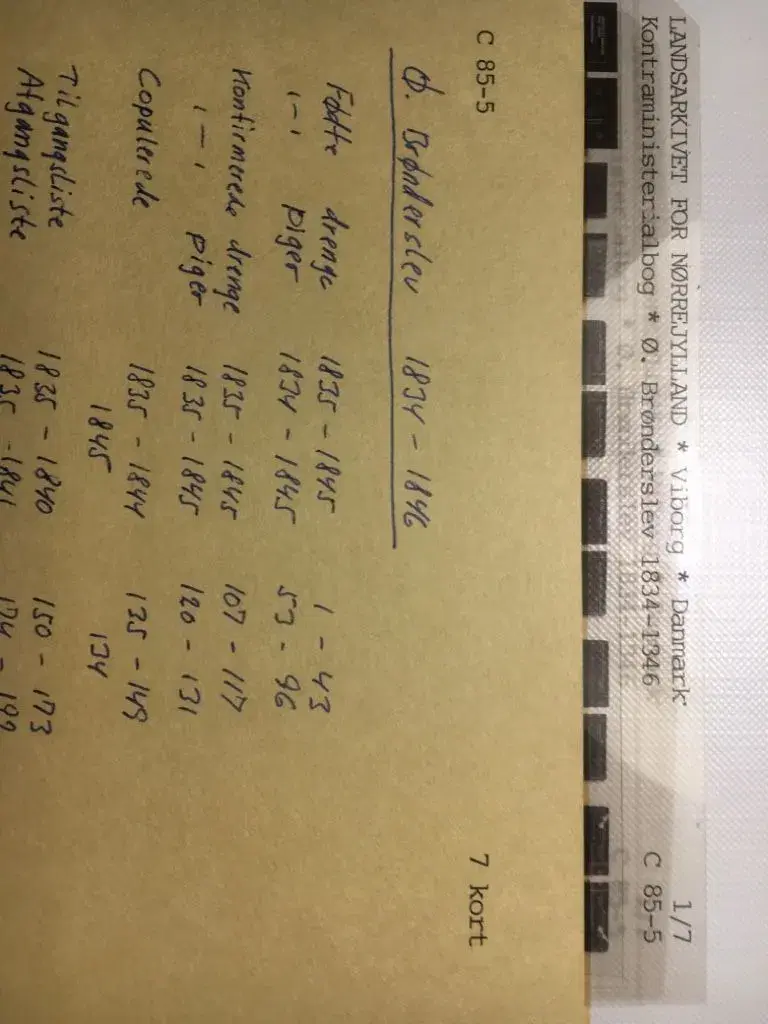 LANDSARKIVET FOR NØRREJYLLAND * Viborg * Danmark 1/7
Kontraministerialbog * Ø. Brønderslev 1834-1346 C 85-5
C 85-5 7 kort
Ø. Brønderslev 1834 - 1846
Fødte drenge 1835 - 1845 1 - 43
1-1 piger 1834 - 1845 53 - 96
Konfirmerede drenge 1835 - 1845 107 - 117
1-1 piger 1835 - 1845 120 - 131
Copulerede 1835 - 1844 135 - 149
1845 134
Tilgangsliste 1835 - 1840 150 - 173
Afgangsliste 1835 - 1841 174 -